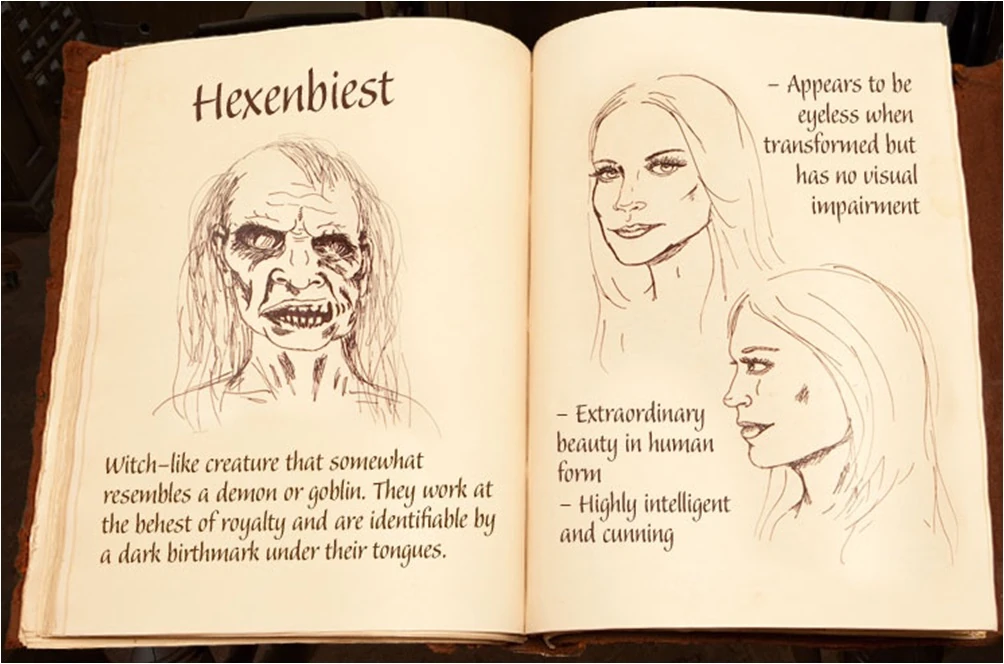 Hexenbiest
Witch-like creature that somewhat
resembles a demon or goblin. They work at
the behest of royalty and are identifiable by
a dark birthmark under their tongues.
- Appears to be
eyeless when
transformed but
has no visual
impairment
- Extraordinary
beauty in human
form
- Highly intelligent
and cunning